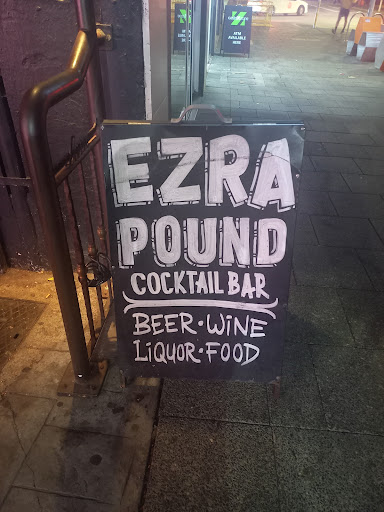 ATM
AVAILABLE
HERE
EZRA
POUND
COCKTAIL BAR
BEER·WiNE
LiQUOR·FOOD